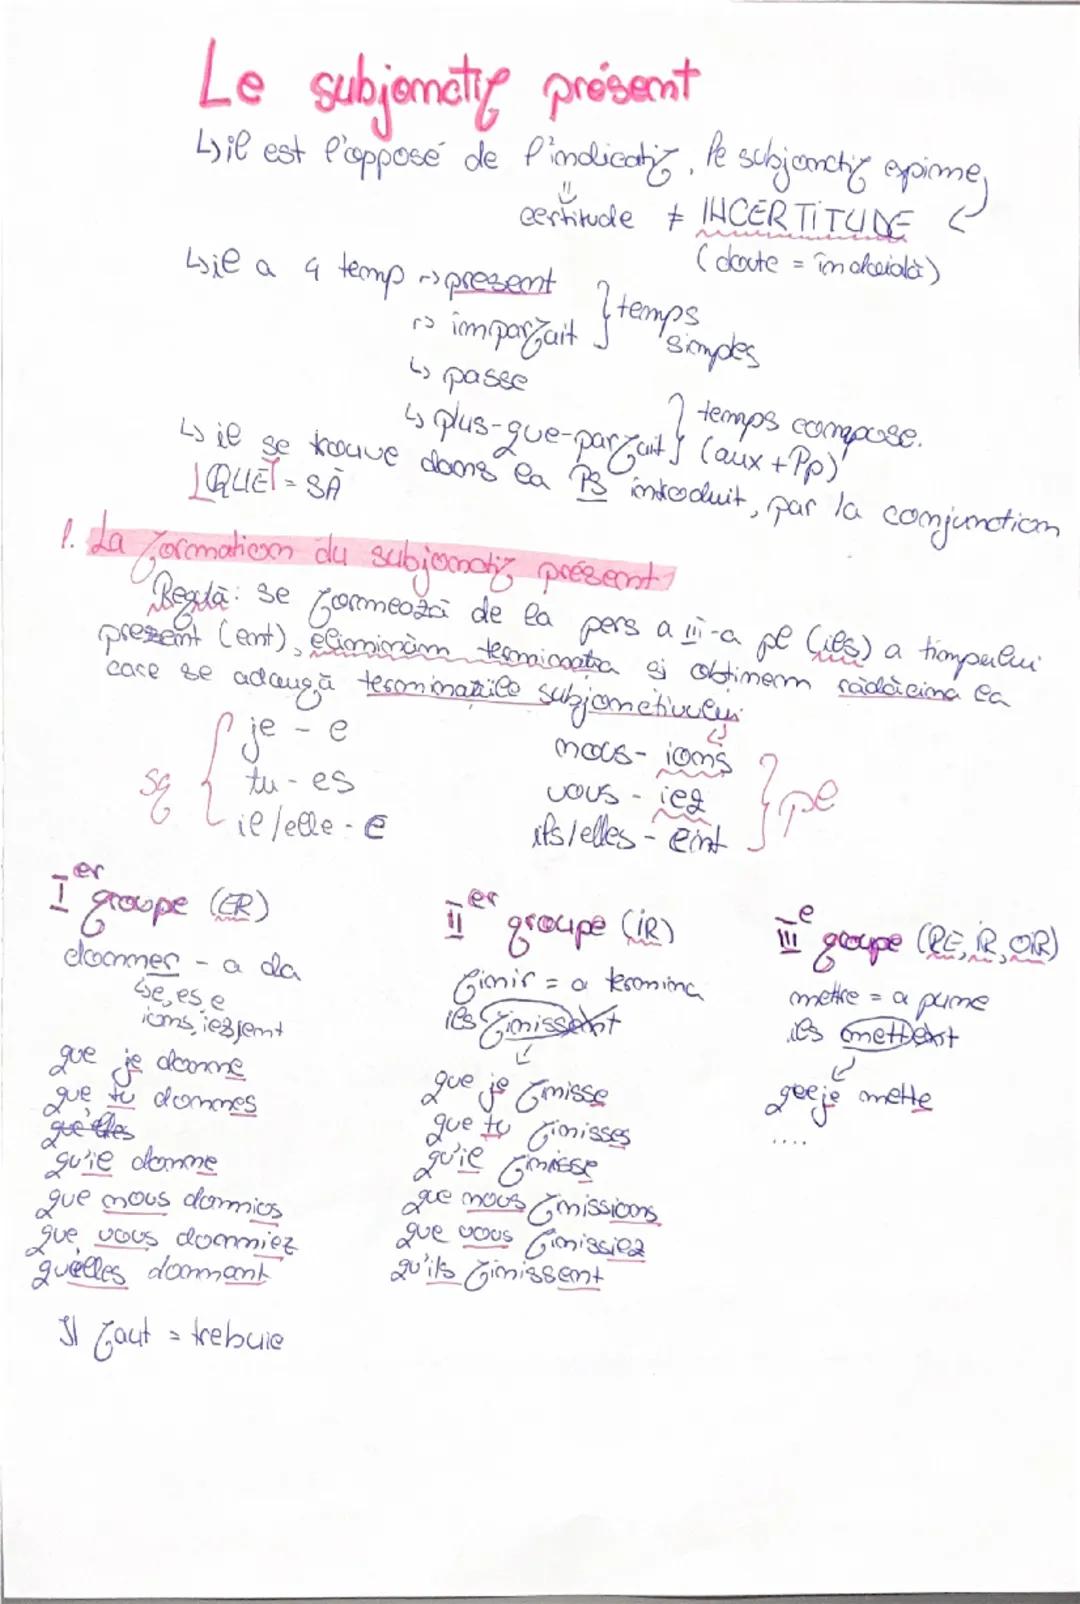 Le subjonctif présent
↳ il est l'opposé de l'indicatif. Le subjonctif expime
certitude ≠ INCERTITUDE
(doute = îndoială)
↳ il a 4 temp → present
↳ imparfait } temps simples
↳ passe
↳ plus-que-parfait } temps compose. (aux + Pp)
↳ il se trouve dans la PS introduit, par la conjunction
QUE = SĂ
1. La formation du subjonctif présent
Regulă: se formează de la pers a III-a pl (ils) a timpului
prezent (ent), eliminăm terminația și obtinem rădăcina la
care se adaugă terminațiile subjonctivului
sg { je - e
tu - es
il/elle - e
nous - ions
vous - iez
ils/elles - ent } pl
I er groupe (ER)
donner - a da
↳ e, es, e
ions, iez, ent
que je donne
que tu donnes
qu'il donne
que nous donnios
que vous donniez
qu'elles donnant
Il faut = trebuie
II er groupe (iR)
finir = a termina
ils finissent
que je finisse
que tu finisses
qu'il finisse
que nous finissions
que vous finissiez
qu'ils finissent
III e groupe (RE, iR, OiR)
mettre = a pune
ils mettent
que je mette
....